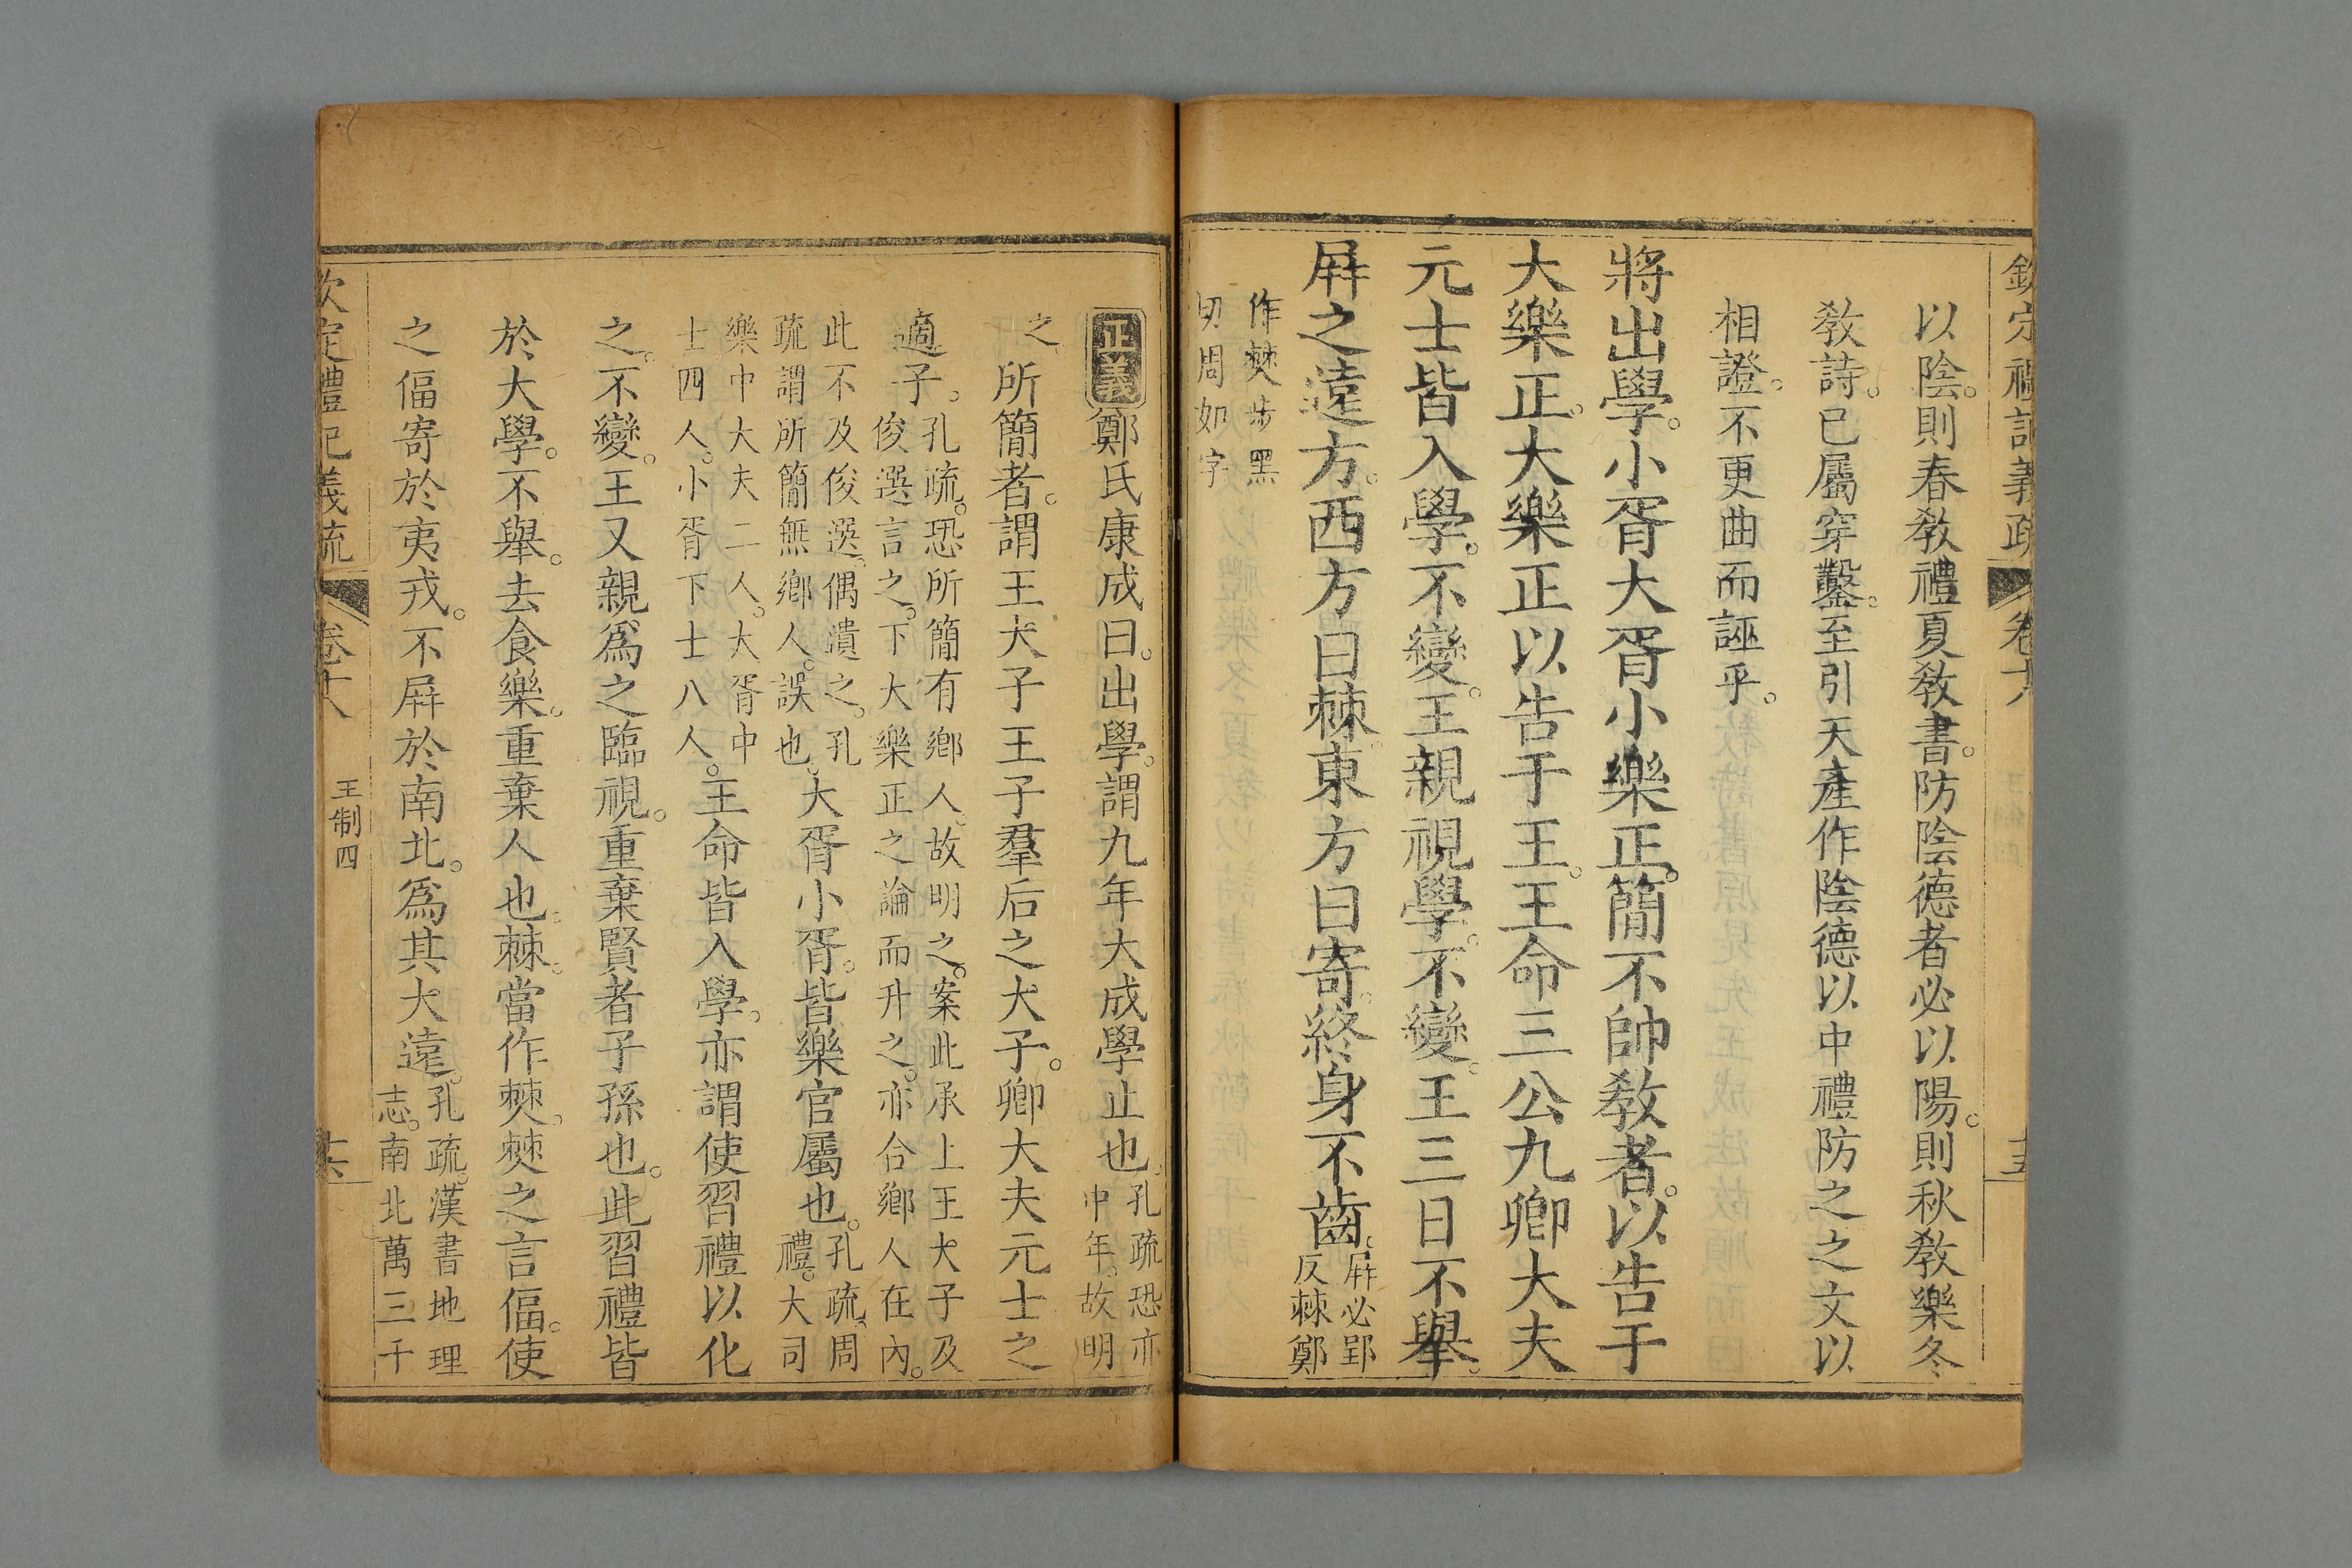 欽定禮記義疏 卷十八 十五
以陰。則春敎禮夏敎書。防陰德者必以陽。則秋敎樂冬
敎詩。已屬穿鑿。至引天產作陰德以中禮防之之文以
相證。不更曲而誣乎。
將出學。小胥大胥小樂正。簡不帥敎者。以告于
大樂正。大樂正以告于王。王命三公九卿大夫
元士皆入學。不變。王親視學。不變。王三日不舉。
屛之遠方。西方曰棘。東方曰寄。終身不齒。
屛必郢
反棘鄭
作僰步黑
切周如字
正義
鄭氏康成曰。出學。謂九年大成學止也。
孔疏恐亦
中年。故明
之。
所簡者。謂王大子王子羣后之大子。卿大夫元士之
適子。
孔疏。恐所簡有鄉人。故明之。案此承上王大子及
俊選言之。下大樂正之論而升之。亦合鄉人在內。
此不及俊選。偶漬之。孔
疏謂所簡無鄉人。誤也。
大胥小胥。皆樂官屬也。
孔疏。周
禮。大司
樂中大夫二人。大胥中
士四人。小胥下士八人。
王命皆入學。亦謂使習禮以化
之。不變。王又親爲之臨視。重棄賢者子孫也。此習禮皆
於大學。不舉。去食樂。重棄人也。棘。當作僰。僰之言偪。使
之偪寄於夷戎。不屛於南北。爲其大遠。
孔疏。漢書地理
志。南北萬三千
欽定禮記義疏 卷十八 王制四 十六